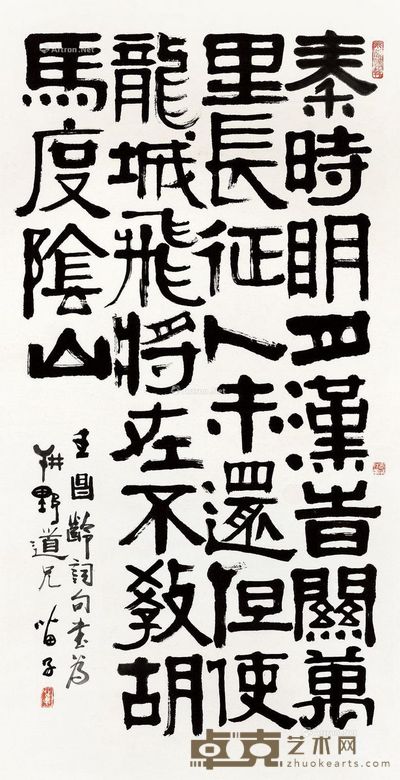 秦時明月漢旹關萬
里長征人未還但使
龍城飛將在不教胡
馬度陰山
王昌齡詞句書為
耕野道兄 苗子
卓克艺术网
zhuokearts.com